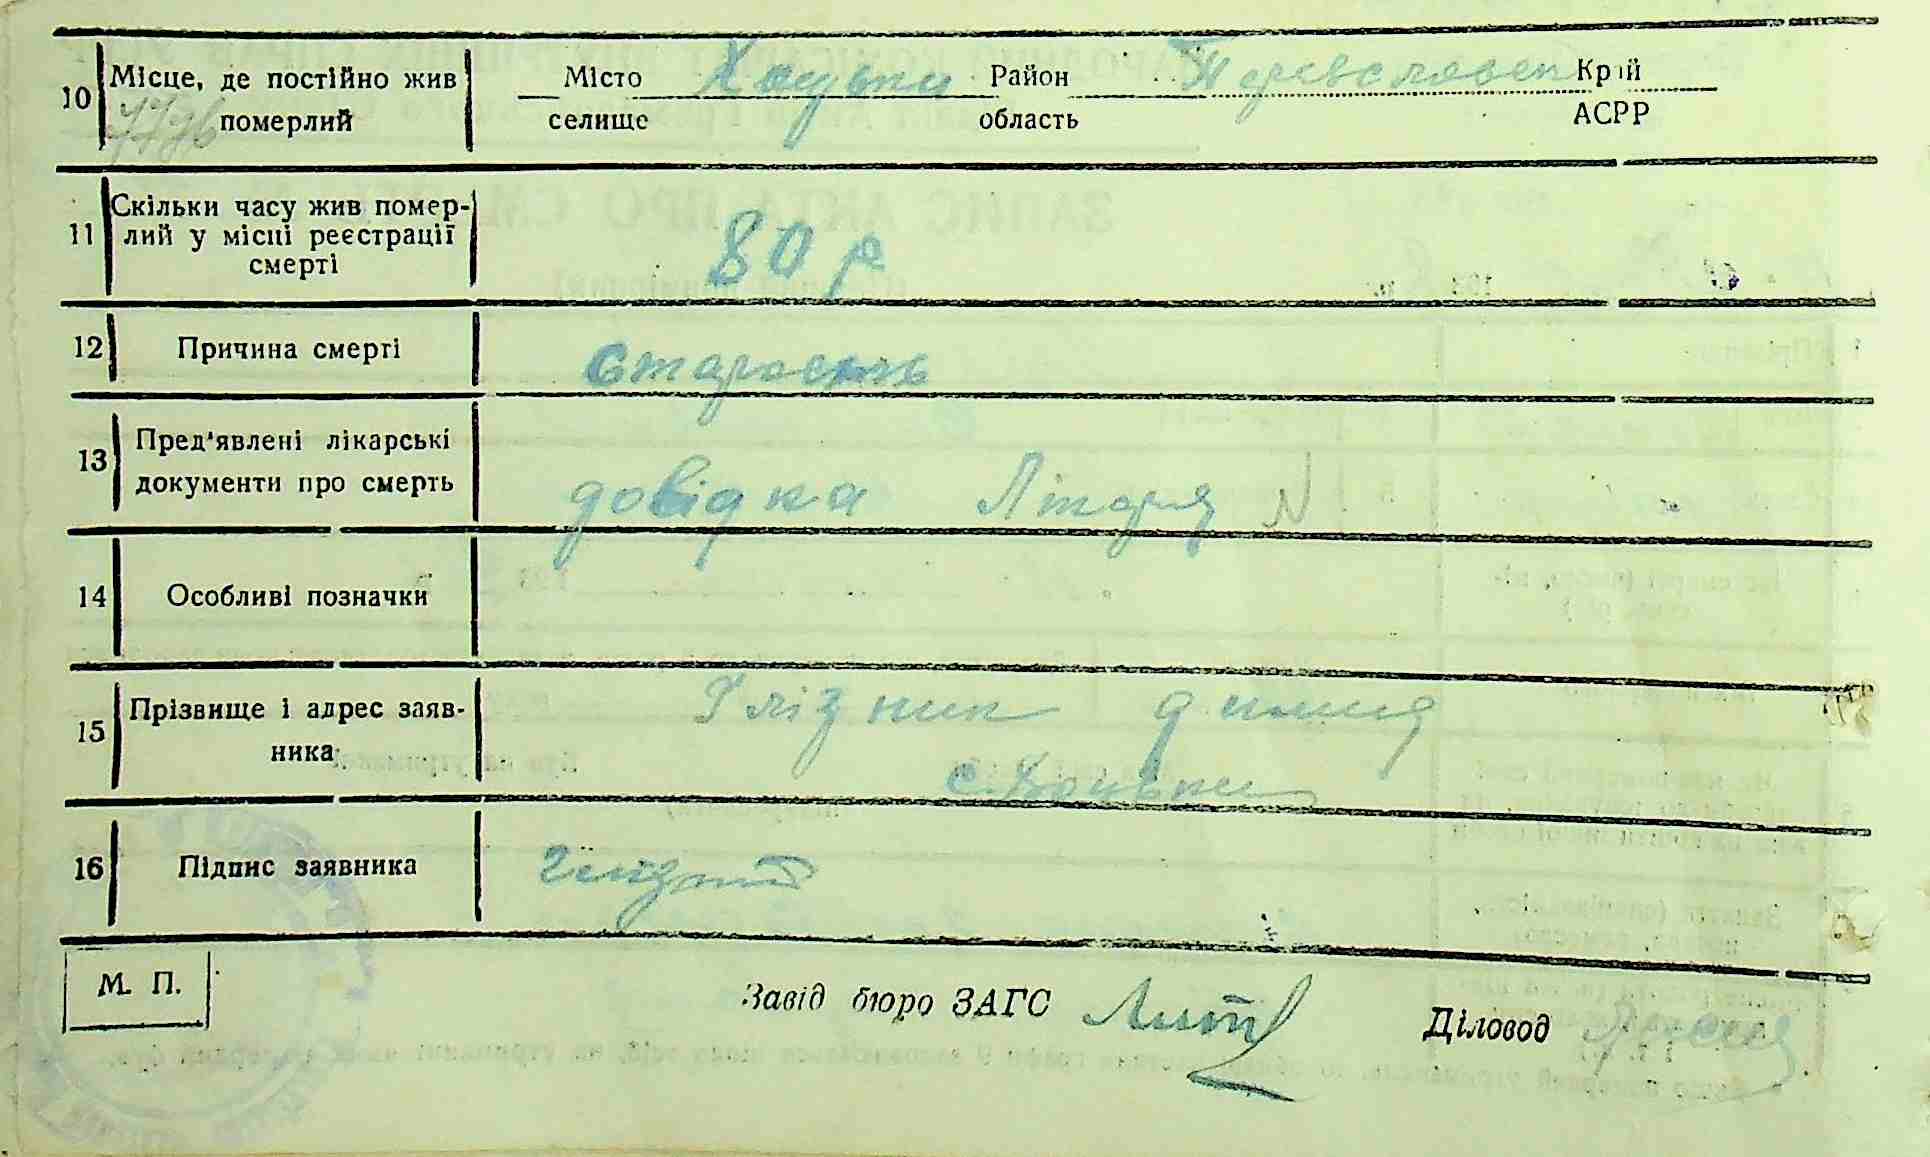 10 Місце, де постійно жив померлий
Місто селище Хоцьки Район область Переяславськ Край АСРР
11 Скільки часу жив помер-
лий у місці реєстрації
смерті
80 р
12 Причина смерті старость
13 Пред'явлені лікарські
документи про смерть
довідка Лікаря N
14 Особливі позначки
15 Прізвище і адрес заяв-
ника
с. Хоцьки
16 Підпис заявника
М. П.
Завід бюро ЗАГС
Діловод